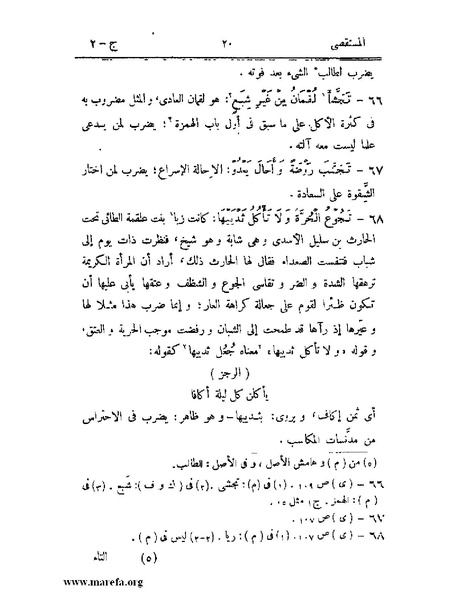 المستقصى ٢٠ ج – ٢
يضرب لطالب° الشيء بعد فوته .
٦٦ – تَجَشَّأَ ١ لُقْمَانُ مِنْ غَيْرِ شِبَعٍ ٢: هو لقمان العادى، و المثل مضروب به
فى كثرة الأكل على ما سبق فى أول باب الهمزة ٣؛ يضرب لمن يدعى
علما ليست معه آلته .
٦٧ – تَجَنَّبَ رَوْضَةً وَ أَحَالَ يَعْدُوْ: الإحالة الإسراع؛ يضرب لمن اختار
الشِّقوة على السعادة .
٦٨ – تَجُوْعُ الْحُرَّةُ وَ لَا تَأْكُلُ ثَدْيَيْهَا: كانت زبا١ بنت علقمة الطائى تحت
الحارث بن سليل الأسدى و هى شابة و هو شيخ، فنظرت ذات يوم إلى
شباب فتنفست الصعداء فقال لها الحارث ذلك، أراد أن المرأة الكريمة
ترهقها الشدة و الضر و تقاسى الجوع و الشظف و عتقها يأبى عليها أن
تكون ظئرا لقوم على جعالة كراهة العار؛ و إنما ضرب هذا مثلا لها
و عيّرها إذ رآها قد طمحت إلى الشبان و رفضت موجب الحرية و العتق،
و قوله « و لا تأكل ثدييها» ٢معناه جُعْل ثدييها٢ كقوله:
( الرجز )
يأكلن كل ليلة أكافا
أى ثمن إكاف، و يروى: بثدييها – و هو ظاهر؛ يضرب فى الاحتراس
من مدنّسات المكاسب .
(٥) من ( م ) و هامش الأصل ، و فى الأصل : للطالب.
٦٦ – ( ى ) ص ١٠٩ . (١) فى (م): تجشى . (٢) فى ( ك و ف ): شبع . (٣) فى
( م ) : الهمز . ج ١ مثل ٥٠ .
٦٧ – ( ى ) ص ١٠٧ .
٦٨ – ( ى ) ص ١٠٧ . (١) فى ( م ) : ريا . (٢-٢) ليس فى ( م ) .
(٥) التاء
www.marefa.org